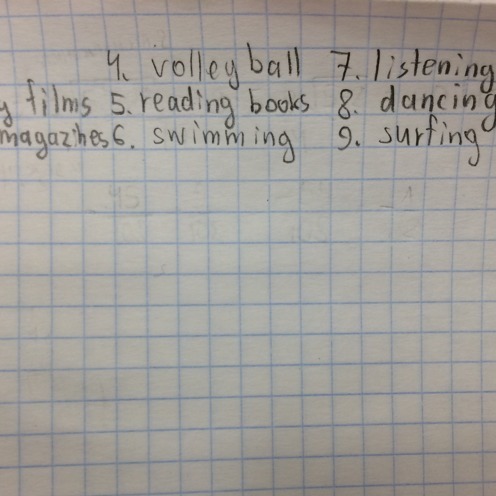 4. volleyball 7. listening
films 5. reading books 8. dancing
magazines 6. swimming 9. surfing